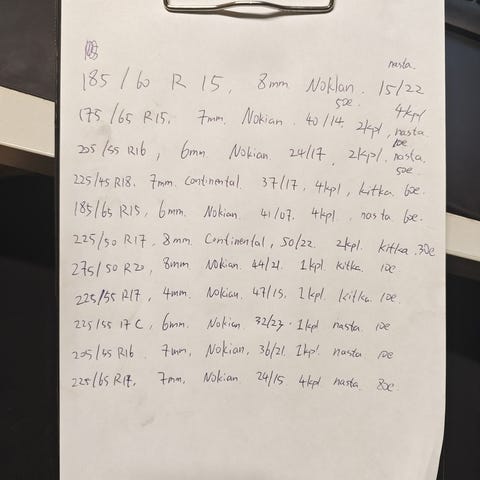 nasta
185/60 R 15, 8mm Nokian. 15/22 4kpl
50e
175/65 R15, 7mm. Nokian. 40/14. 2kpl, nasta 10e
205/55 R16, 6mm Nokian 24/17, 2kpl, nasta. 50e
225/45 R18. 7mm Continental 37/17, 4kpl, kitka 60e.
185/65 R15, 6mm Nokian. 41/07. 4kpl. nasta 60e.
225/50 R17, 8mm Continental, 50/22. 2kpl kitka. 30e
275/50 R20, 8mm Nokian. 44/21. 1kpl. kitka. 10e
225/55 R17, 4mm Nokian. 47/15. 1kpl. kitka. 10e
225/55 17 C, 6mm. Nokian 32/23. 1kpl nasta. 10e
205/55 R16 7mm, Nokian, 36/21. 1kpl. nasta 10e
225/65 R17, 7mm, Nokian. 24/15 4kpl nasta. 80e.